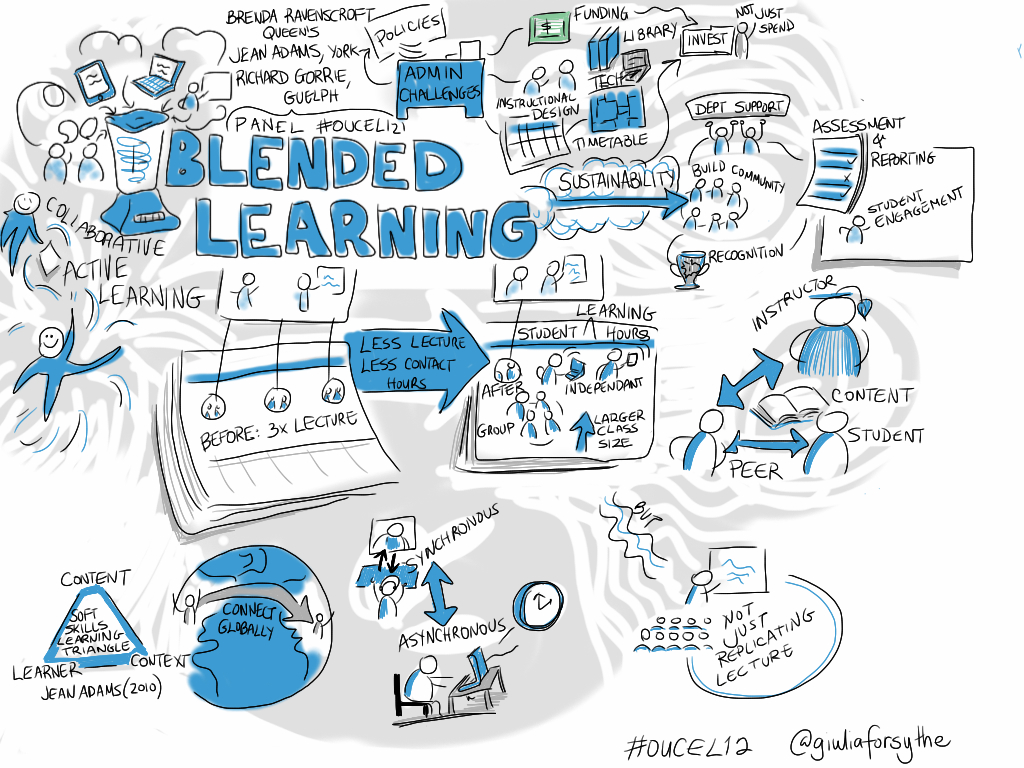 BRENDA RAVENSCROFT
QUEEN'S
JEAN ADAMS, YORK
RICHARD GORRIE,
GUELPH
PANEL #OUCEL121
POLICIES
ADMIN
CHALLENGES
$
FUNDING
LIBRARY
TECH
INSTRUCTIONAL
DESIGN
TIMETABLE
INVEST
NOT JUST
SPEND
BLENDED
LEARNING
SUSTAINABILITY
DEPT SUPPORT
BUILD COMMUNITY
RECOGNITION
ASSESSMENT
&
REPORTING
STUDENT
ENGAGEMENT
COLLABORATIVE
ACTIVE
LEARNING
BEFORE: 3X LECTURE
LESS LECTURE
LESS CONTACT
HOURS
LEARNING
STUDENT ∧ HOURS
AFTER
INDEPENDANT
GROUP
LARGER
CLASS
SIZE
INSTRUCTOR
CONTENT
STUDENT
PEER
CONTENT
SOFT
SKILLS
LEARNING
TRIANGLE
LEARNER
CONTEXT
JEAN ADAMS (2010)
CONNECT
GLOBALLY
SYNCHRONOUS
ASYNCHRONOUS
BUT
NOT
JUST
REPLICATING
LECTURE
#OUCEL12 @giuliaforsythe